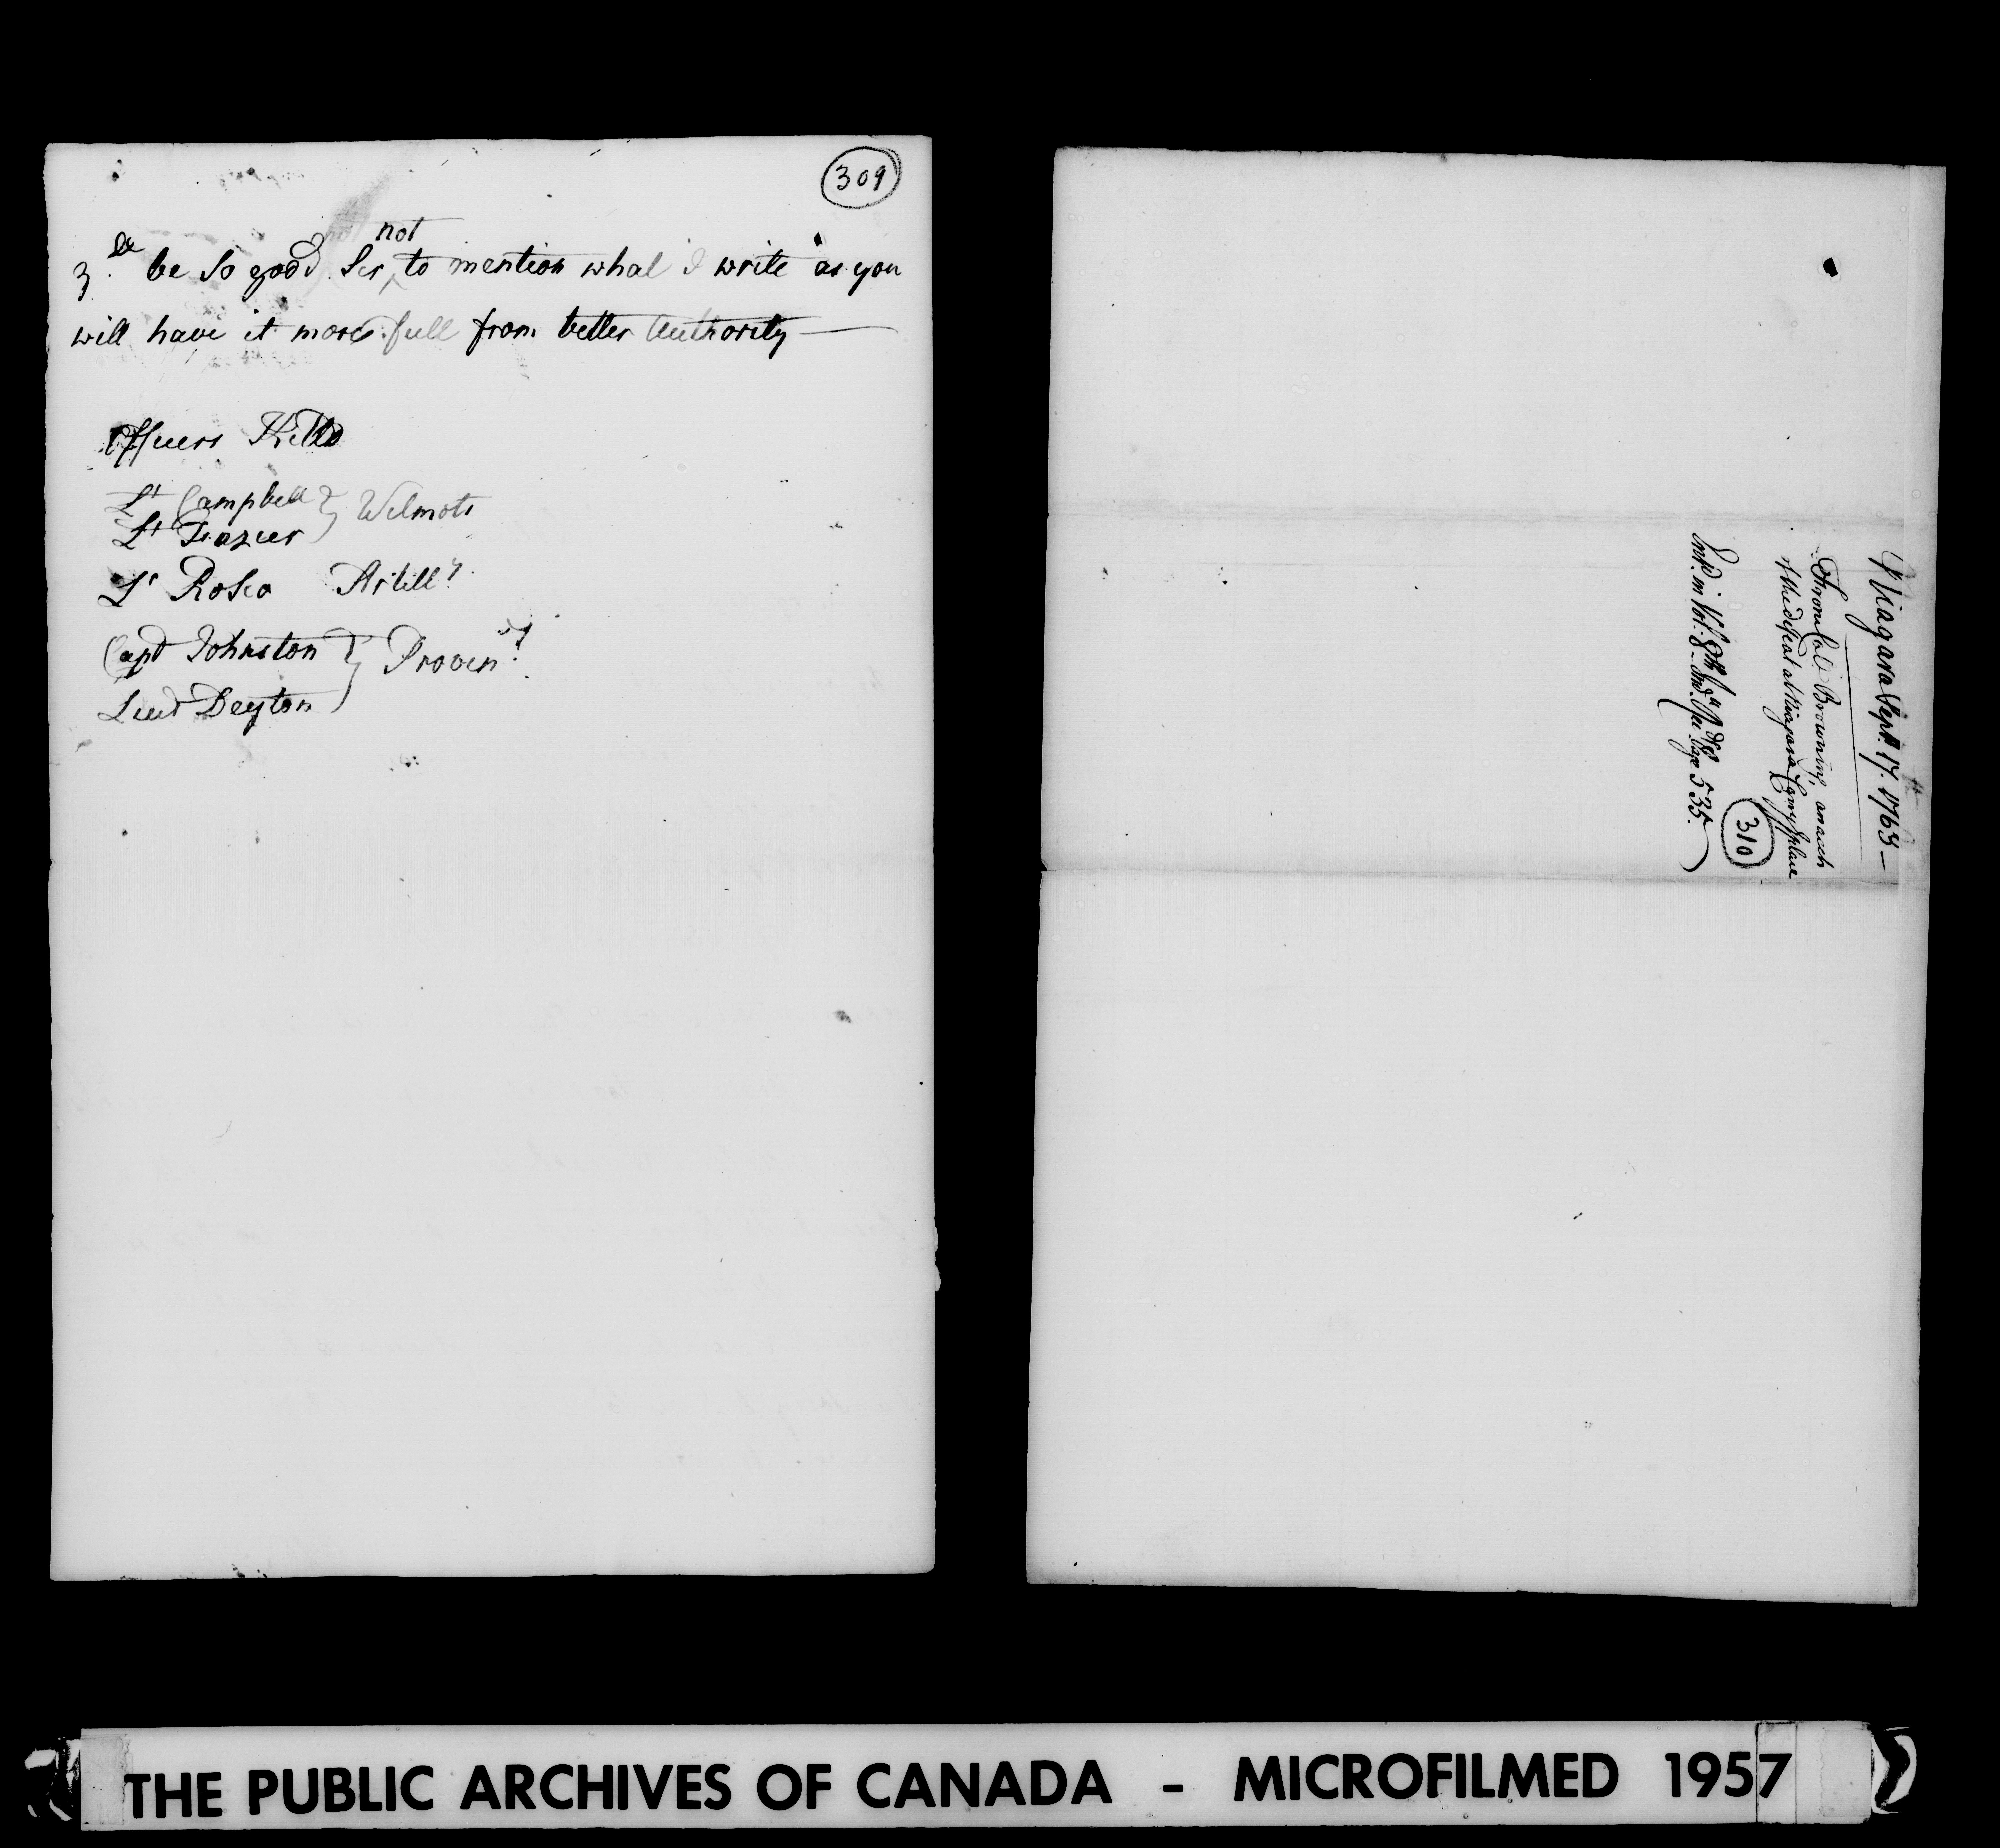 309
be so good Sir not to mention what I write as you
will have it more full from better Authority —
Officers Killd
Lt Campbell } Wilmots
Lt Frazier
Lt Rosco Artilly
Capt Johnston } Provinl
Lieut Deyton
Niagara Sept. 17th 1763—
From Colo. Browning, an acct
of the defeat at Niagara Carrying place
310
in Vol. 8th
and. See Page 535.)
THE PUBLIC ARCHIVES OF CANADA - MICROFILMED 1957